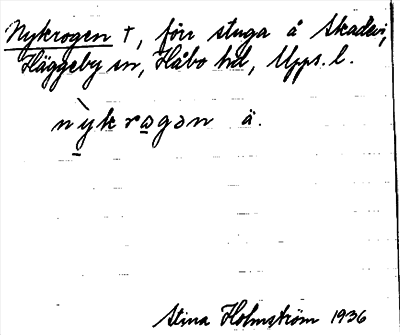 Nykrogen †, förr stuga å Skadevi,
Häggeby sn, Håbo hd, Upps. l.
nỳkrogən ä.
Stina Holmström 1936